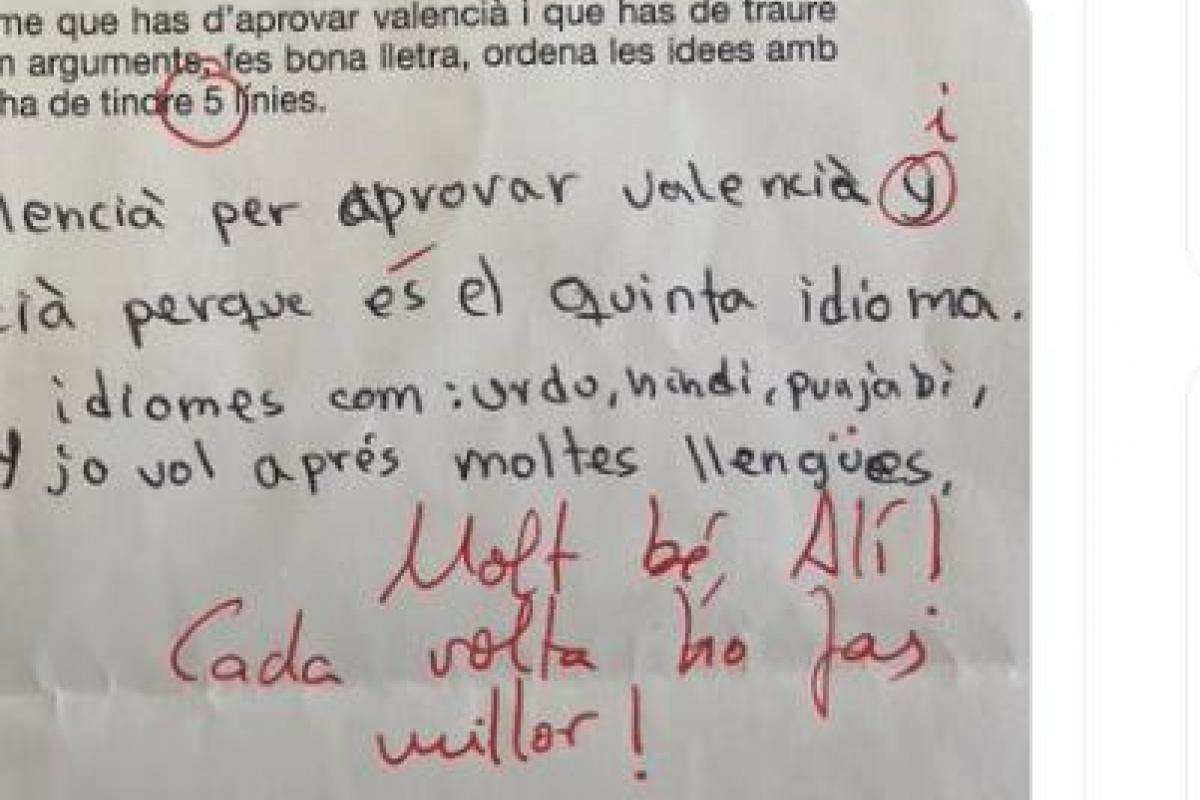 me que has d'aprovar valencià i que has de traure
n arguments, fes bona lletra, ordena les idees amb
ha de tindre 5 línies.
i
lencià per aprovar valencià y
cià perque és el quinta idioma.
idiomes com: urdu, hindi, punjabi,
y jo vol aprés moltes llengües,
Molt bé Alí!
Cada volta ho fas
millor!